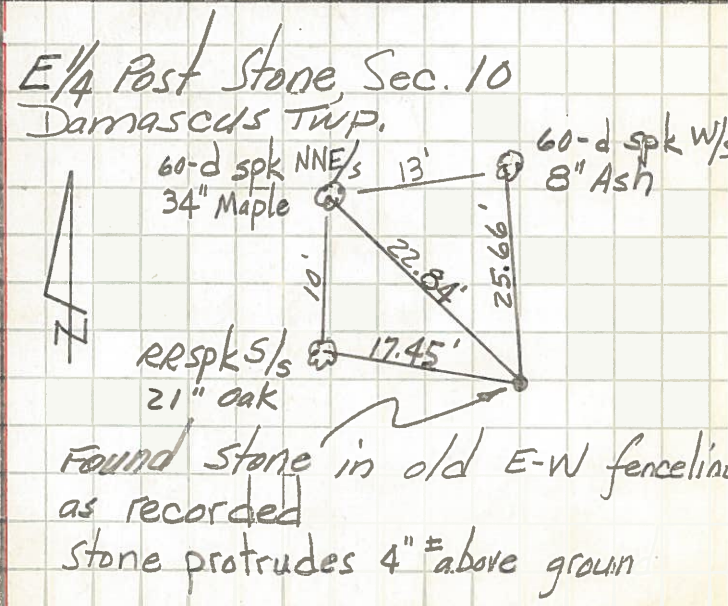 E 1/4 Post Stone, Sec. 10
Damascus Twp.
60-d spk NNE/s
34" Maple
13'
60-d spk W/s
8" Ash
22.84'
25.66'
10'
RR spk S/s
21" Oak
17.45'
N
Found Stone in old E-W fenceline
as recorded
Stone protrudes 4" ± above groun